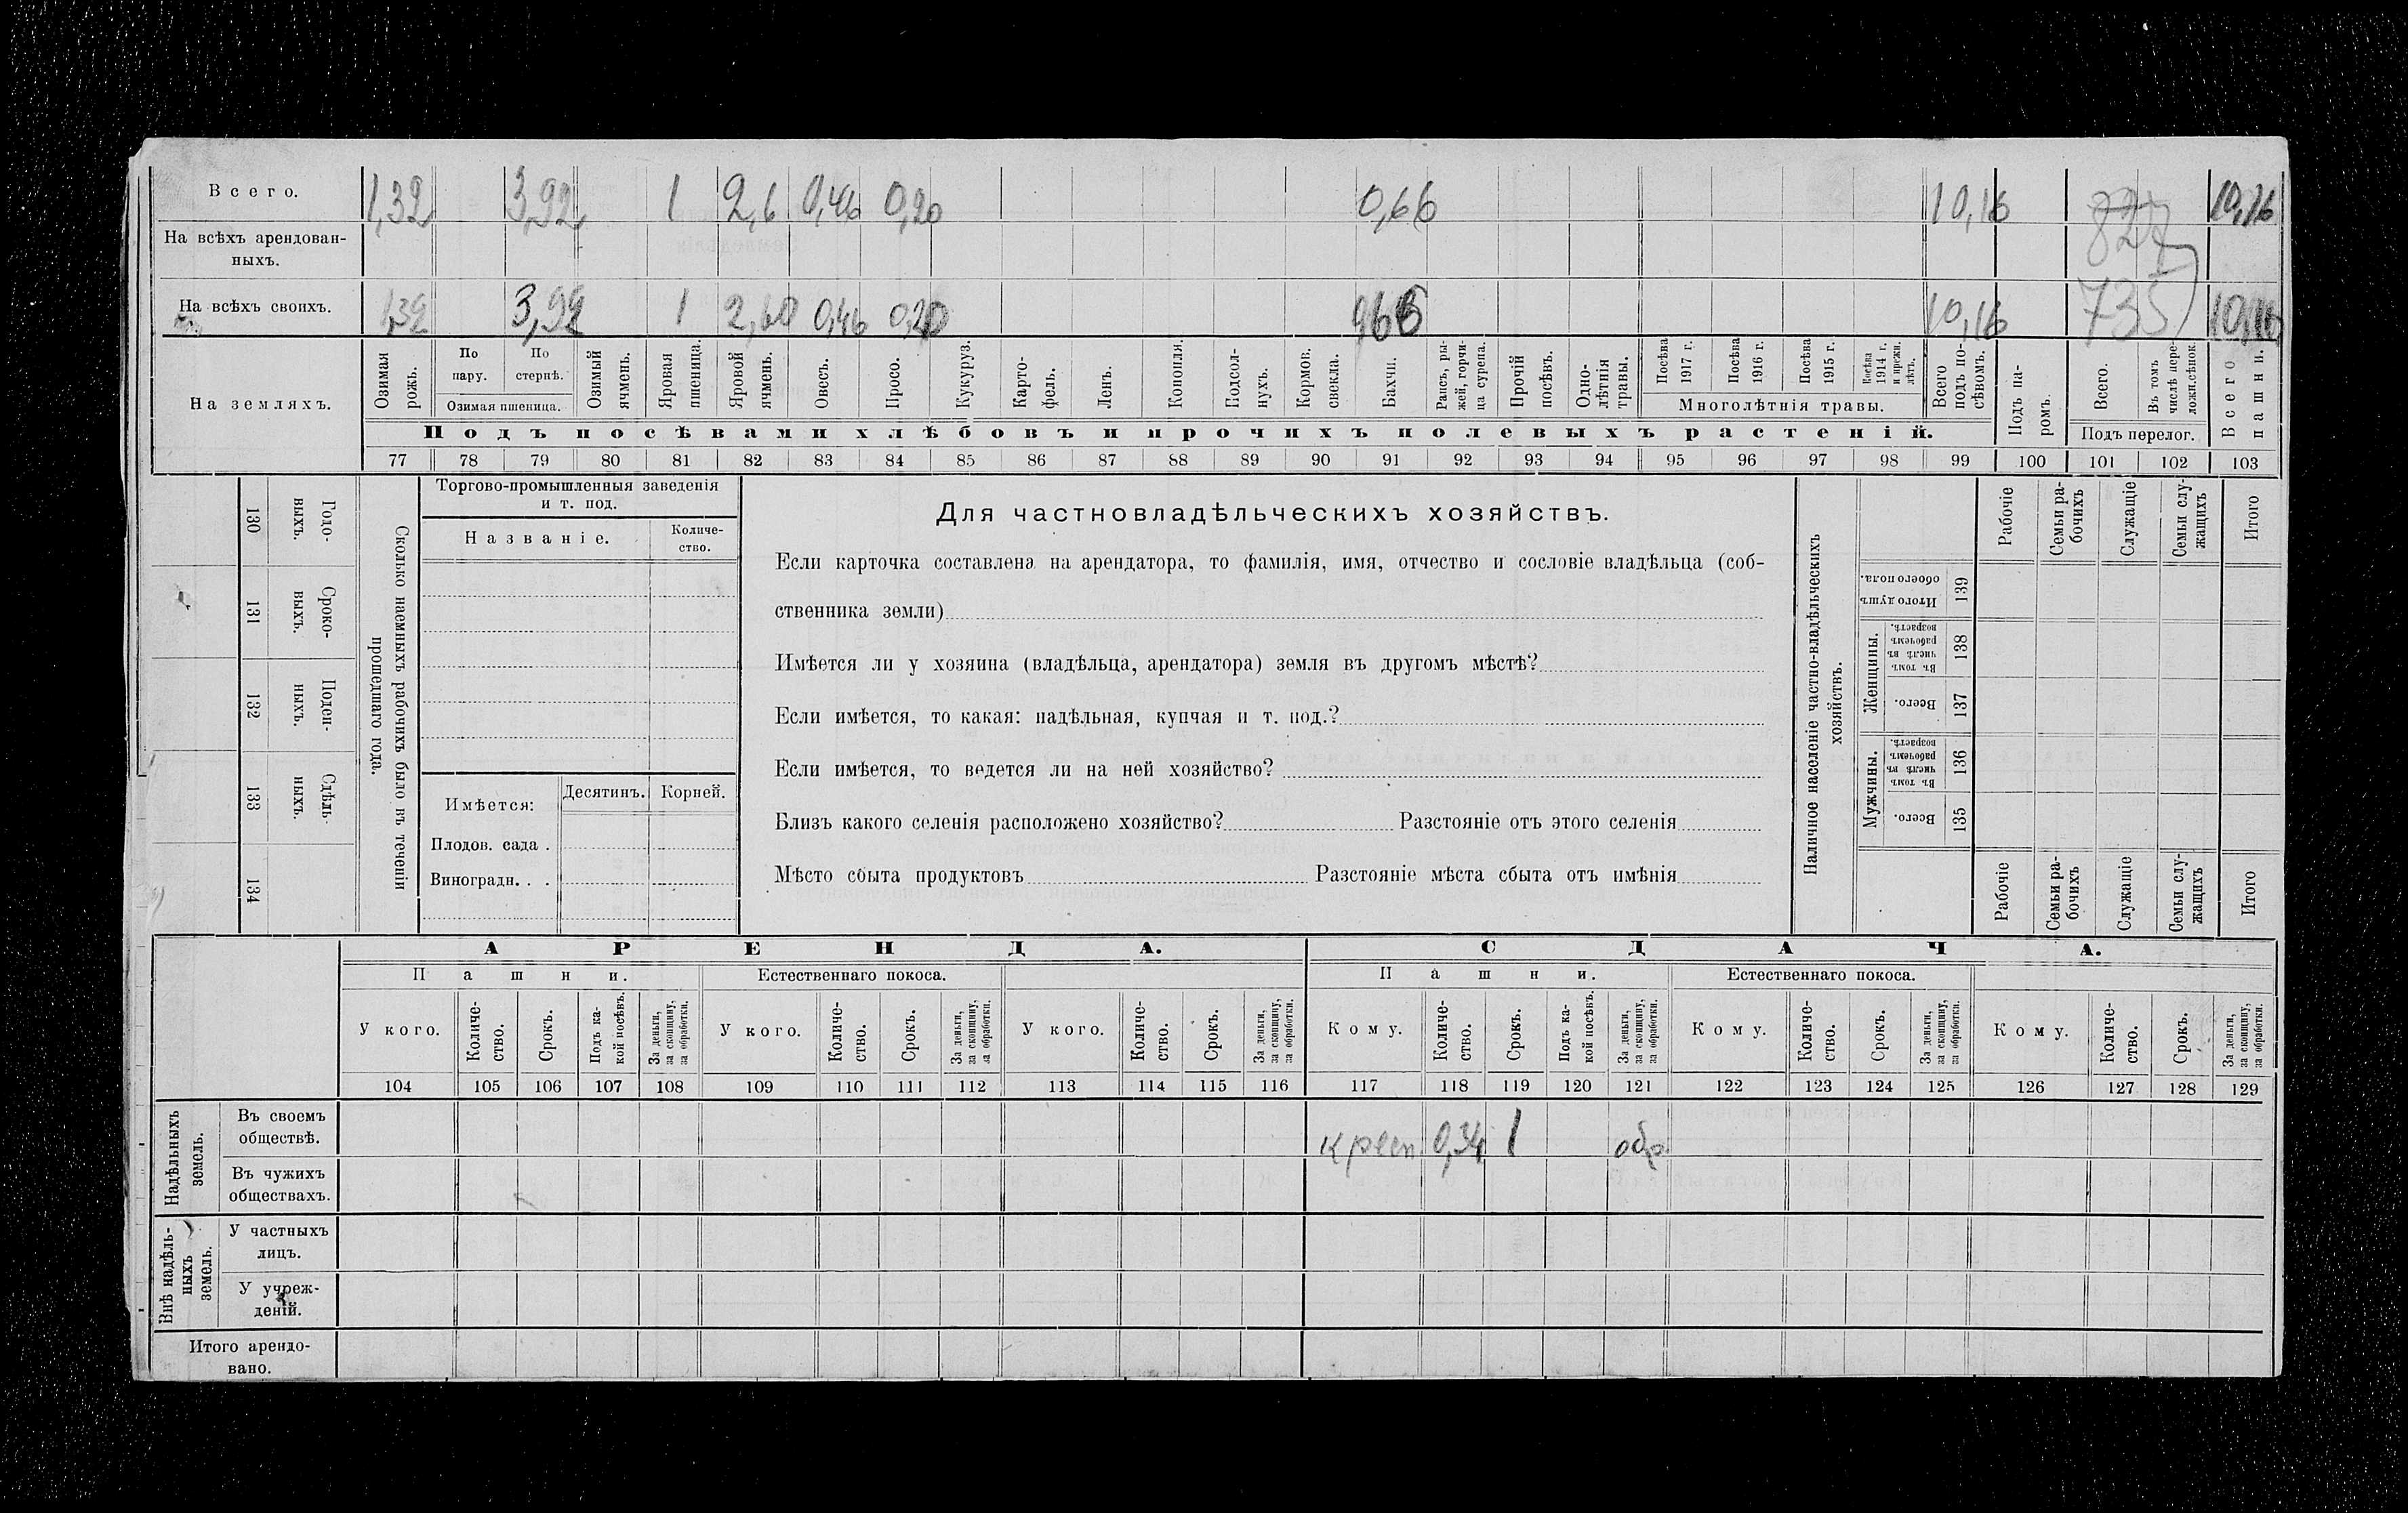 Всего. 1,32 3,92 1 2,6 0,46 0,20 0,66 10,16 827 10,16
На всѣхъ арендован-
ныхъ.
На всѣхъ своихъ. 1,32 3,92 1 2,60 0,46 0,20 0,66 10,16 735 10,16
На земляхъ.
Озимая рожь.
По пару.
По стернѣ.
Озимая пшеница.
Озимый ячмень.
Яровая пшеница.
Яровой ячмень.
Овесъ.
Просо.
Кукуруз.
Карто-
фель.
Ленъ.
Конопля.
Подсол-
нухъ.
Кормов. свекла.
Бахчи.
Рапсъ, ры-
жей, горчи-
ца сурепа.
Прочій посѣвъ.
Одно-
лѣтнія травы.
Посѣва 1917 г.
Посѣва 1916 г.
Посѣва 1915 г.
Посѣва 1914 г. и прежн. лѣтъ.
Многолѣтнія травы.
Всего подъ по-
сѣвомъ.
Подъ па-
ромъ.
Всего.
Въ томъ числѣ пере-
ложн.сѣнок.
Подъ перелог.
Всего пашни.
Подъ посѣвами хлѣбовъ и прочихъ полевыхъ растеній.
77 78 79 80 81 82 83 84 85 86 87 88 89 90 91 92 93 94 95 96 97 98 99 100 101 102 103
130 Годо-
ныхъ.
131 Сроко-
выхъ.
132 Поден-
ныхъ.
133 Сдѣль-
ныхъ.
134
Сколько наемныхъ рабочихъ было въ теченіи
прошедшаго года.
Торгово-промышленныя заведенія
и т. под.
Названіе.
Количе-
ство.
Имѣется: Десятинъ. Корней.
Плодов. сада .
Виноградн. . .
Для частновладѣльческихъ хозяйствъ.
Если карточка составлена на арендатора, то фамилія, имя, отчество и сословіе владѣльца (соб-
ственника земли)
Имѣется ли у хозяина (владѣльца, арендатора) земля въ другомъ мѣстѣ?
Если имѣется, то какая: надѣльная, купчая и т. под.?
Если имѣется, то ведется ли на ней хозяйство?
Близъ какого селенія расположено хозяйство? Разстояніе отъ этого селенія
Мѣсто сбыта продуктовъ Разстояніе мѣста сбыта отъ имѣнія
Наличное населеніе частно-владѣльческихъ
хозяйствъ.
Рабочіе
Семьи ра-
бочихъ
Служащіе
Семьи слу-
жащихъ
Итого
Итого душъ обоего пола. 139
Женщины.
Въ томъ числѣ въ рабочемъ возрастѣ. 138
Всего. 137
Мужчины.
Въ томъ числѣ въ рабочемъ возрастѣ. 136
Всего. 135
Рабочіе
Семьи ра-
бочихъ
Служащіе
Семьи слу-
жащихъ
Итого
АРЕНДА. СДАЧА.
Пашни. Естественнаго покоса. Пашни. Естественнаго покоса.
У кого.
Количе-
ство.
Срокъ.
Подъ ка-
кой посѣвъ.
За деньги,
за скопщину,
за обработки.
У кого.
Количе-
ство.
Срокъ.
За деньги,
за скопщину,
за обработки.
У кого.
Количе-
ство.
Срокъ.
За деньги,
за скопщину,
за обработки.
Кому.
Количе-
ство.
Срокъ.
Подъ ка-
кой посѣвъ.
За деньги,
за скопщину,
за обработки.
Кому.
Количе-
ство.
Срокъ.
За деньги,
за скопщину,
за обработки.
Кому.
Количе-
ство.
Срокъ.
За деньги,
за скопщину,
за обработки.
104 105 106 107 108 109 110 111 112 113 114 115 116 117 118 119 120 121 122 123 124 125 126 127 128 129
Надѣльныхъ
земель.
Въ своемъ
обществѣ. крест 0,34 1 обр.
Въ чужихъ
обществахъ.
Внѣ надѣль-
ныхъ
земель.
У частныхъ
лицъ.
У учреж-
деній.
Итого арендо-
вано.